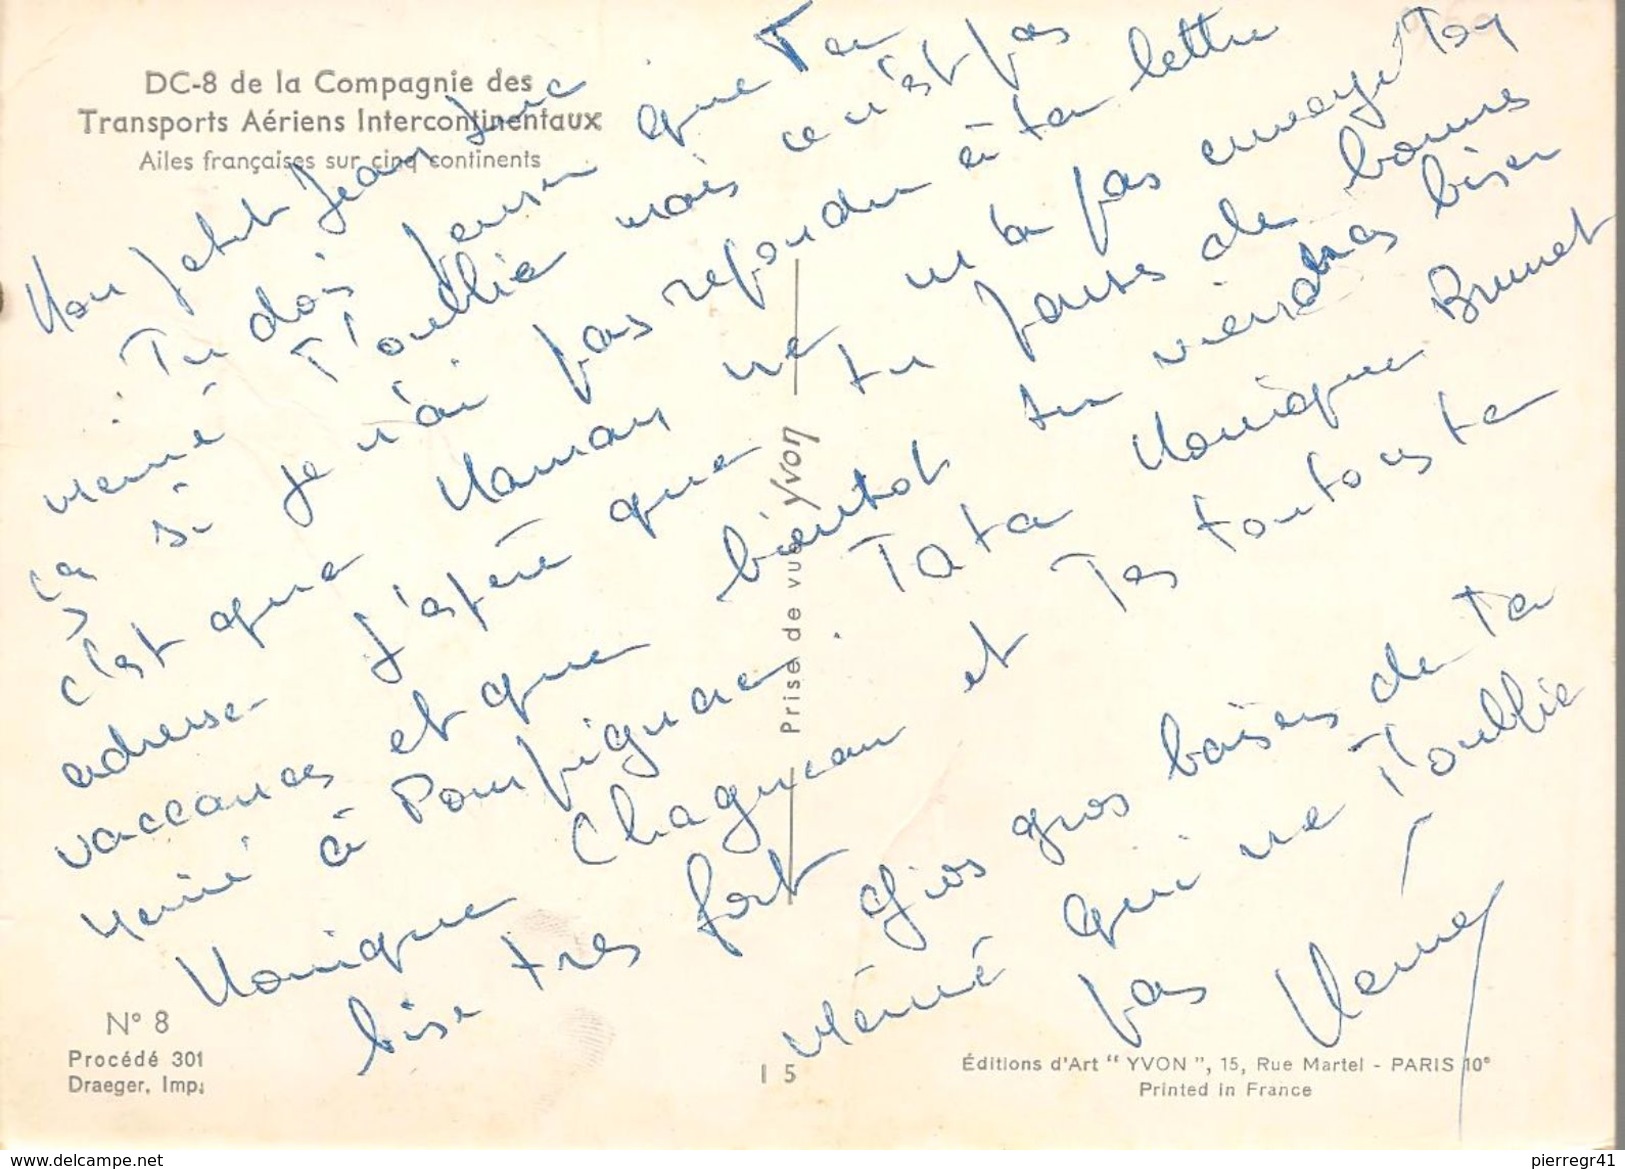 DC-8 de la Compagnie des
Transports Aériens Intercontinentaux
Ailes françaises sur cinq continents
Mon petit Jean Luc
Tu dois penser que Ta
mémé T'oublie mais ce n'est pas
ça si je n'ai pas repondu à ta lettre
c'est que Maman ne m'a pas envoyé Ton
adresse. J'espère que tu passes de bonnes
vaccances et que bientot tu viendras biser
Mémé à Pompignac. Tata Monique Brunet
Monique Chagneau et Tes toutous te
bise tres fort gros gros baisers de Ta
mémé qui ne T'oublie
pas Mémé
Prise de vue YVON
N° 8
Procédé 301
Draeger, Imp.
I 5
Éditions d'Art "YVON", 15, Rue Martel - PARIS 10e
Printed in France
www.delcampe.net
pierregr41